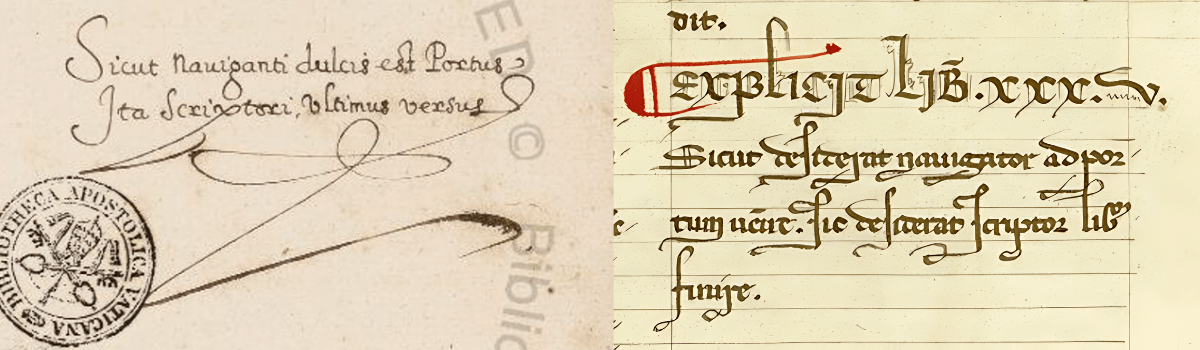 Sicut Nauiganti dulcis est Portus
Ita Scriptori, Vltimus versus
BIBLIOTHECA APOSTOLICA VATICANA
ED ©
Biblio
dit.
Explicit lib̄ .xxx.iiii v.
Sicut desiderat nauigator ad por
tum uenire. sic desiderat scriptor libꝝ
finire.